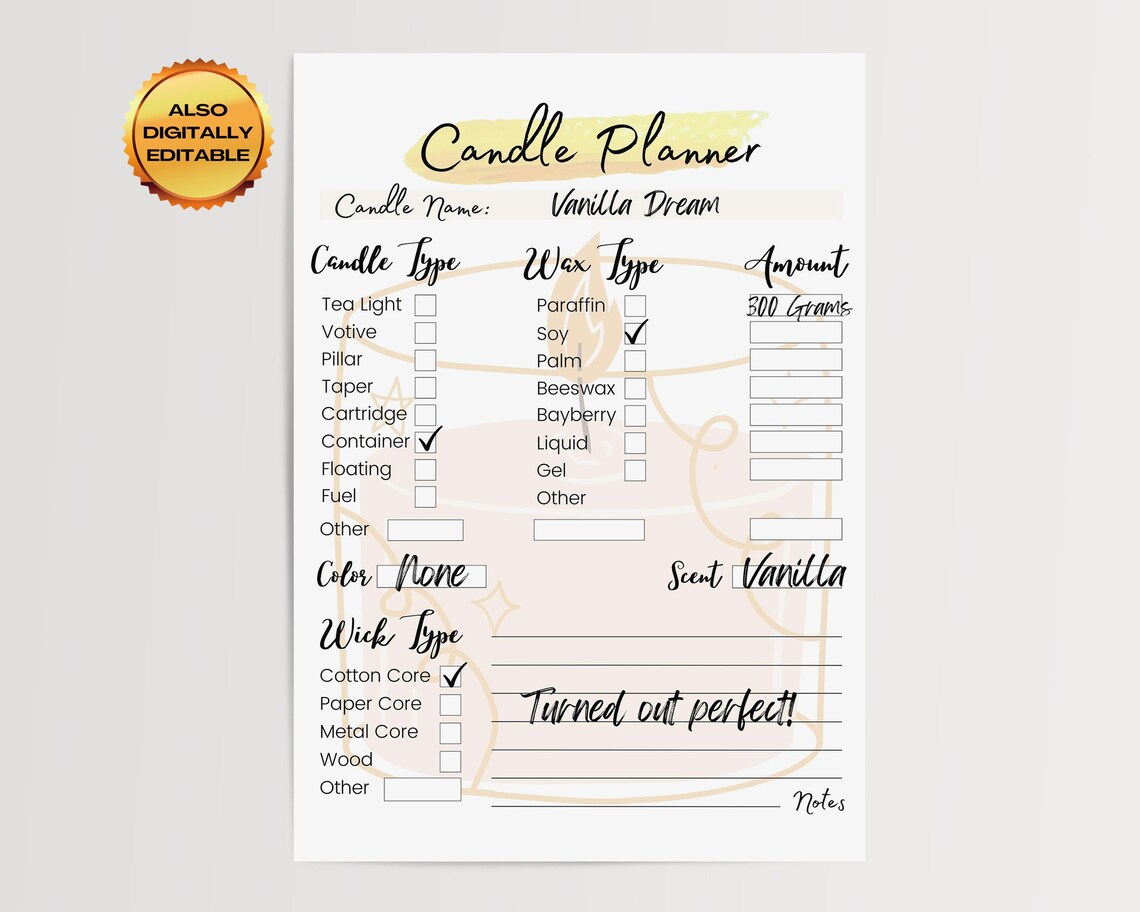 ALSO
DIGITALLY
EDITABLE
Candle Planner
Candle Name: Vanilla Dream
Candle Type Wax Type Amount
Tea Light Paraffin 300 Grams
Votive Soy ✓
Pillar Palm
Taper Beeswax
Cartridge Bayberry
Container ✓ Liquid
Floating Gel
Fuel Other
Other
Color None Scent Vanilla
Wick Type
Cotton Core ✓
Paper Core
Turned out perfect!
Metal Core
Wood
Other
Notes